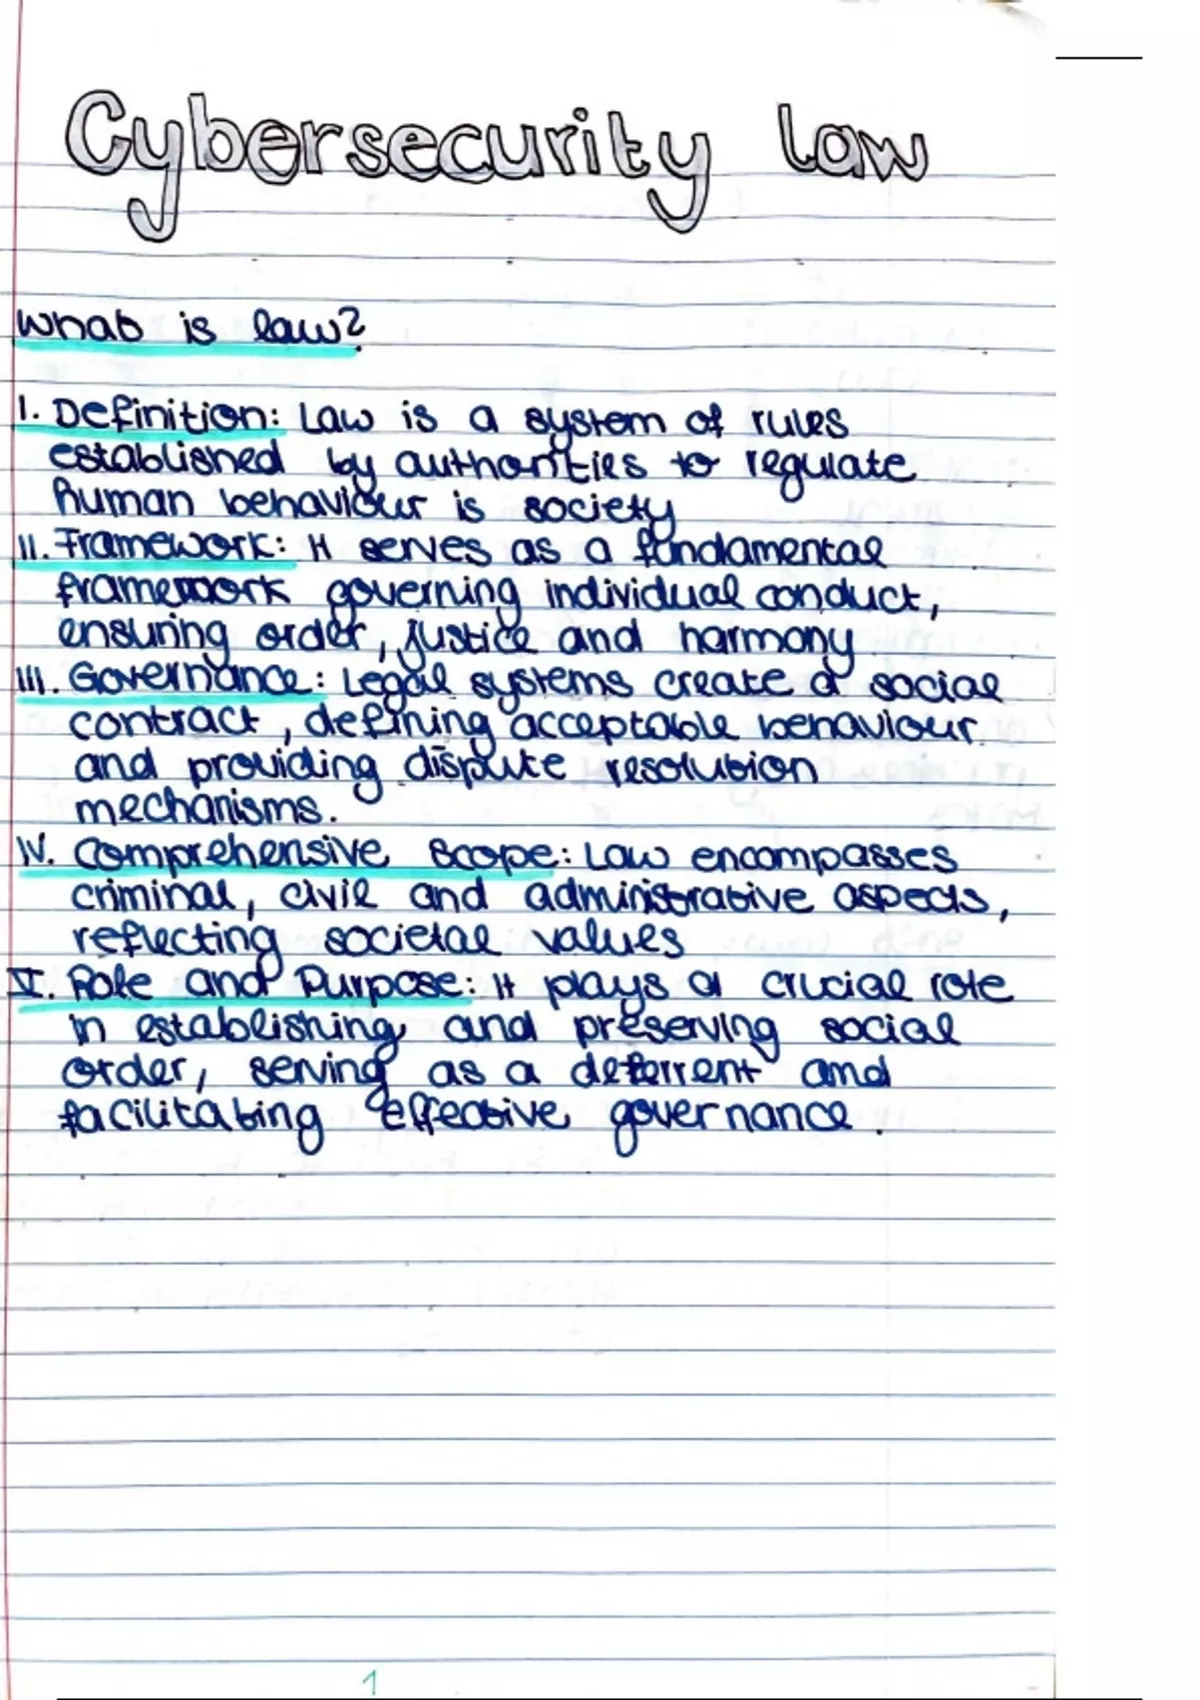 Cybersecurity law
What is law?
I. Definition: Law is a system of rules
established by authorities to regulate
human behaviour is society
II. Framework: It serves as a fundamental
framework governing individual conduct,
ensuring order, justice and harmony
III. Governance: Legal systems create a social
contract, defining acceptable behaviour
and providing dispute resolution
mechanisms.
IV. Comprehensive Scope: Law encompasses
criminal, civil and administrative aspects,
reflecting societal values
V. Role and Purpose: It plays a crucial role
in establishing and preserving social
order, serving as a deterrent and
facilitating effective governance.
1